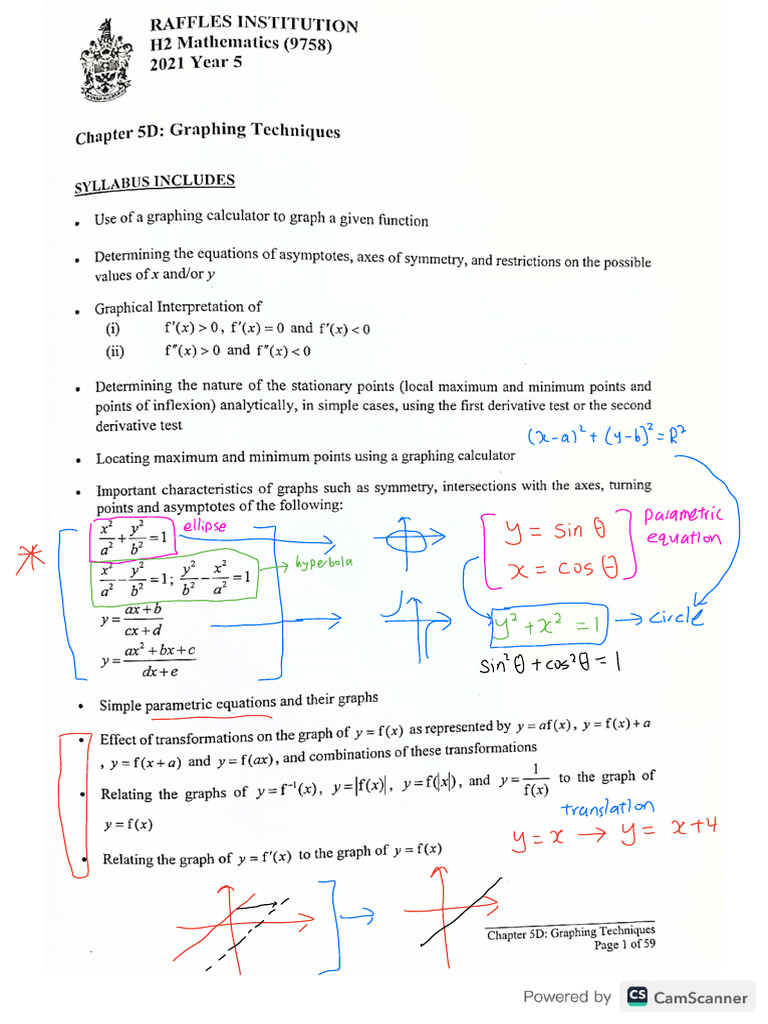 RAFFLES INSTITUTION
H2 Mathematics (9758)
2021 Year 5
Chapter 5D: Graphing Techniques
SYLLABUS INCLUDES
• Use of a graphing calculator to graph a given function
• Determining the equations of asymptotes, axes of symmetry, and restrictions on the possible
values of x and/or y
• Graphical Interpretation of
(i) f′(x) > 0, f′(x) = 0 and f′(x) < 0
(ii) f″(x) > 0 and f″(x) < 0
• Determining the nature of the stationary points (local maximum and minimum points and
points of inflexion) analytically, in simple cases, using the first derivative test or the second
derivative test
(x-a)² + (y-b)² = R²
• Locating maximum and minimum points using a graphing calculator
• Important characteristics of graphs such as symmetry, intersections with the axes, turning
points and asymptotes of the following:
x²/a² + y²/b² = 1
ellipse
x²/a² − y²/b² = 1; y²/b² − x²/a² = 1
hyperbola
y = (ax+b)/(cx+d)
y = (ax²+bx+c)/(dx+e)
y = sin θ
x = cos θ
parametric
equation
y² + x² = 1 → circle
sin²θ + cos²θ = 1
• Simple parametric equations and their graphs
• Effect of transformations on the graph of y = f(x) as represented by y = af(x), y = f(x)+a
, y = f(x+a) and y = f(ax), and combinations of these transformations
• Relating the graphs of y = f⁻¹(x), y = |f(x)|, y = f(|x|), and y = 1/f(x) to the graph of
y = f(x)
translation
y = x → y = x+4
• Relating the graph of y = f′(x) to the graph of y = f(x)
Chapter 5D: Graphing Techniques
Page 1 of 59
Powered by CS CamScanner